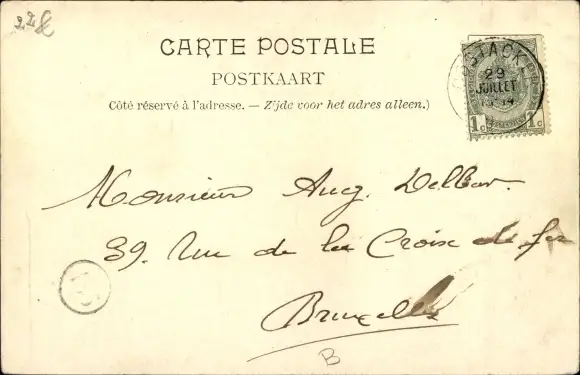 22
CARTE POSTALE
POSTKAART
Côté réservé à l'adresse. — Zijde voor het adres alleen.)
OOSTACKER
29
JUILLET
1c 1c
Monsieur Aug.
39. Rue de la Croix de fer
Bruxelles
B